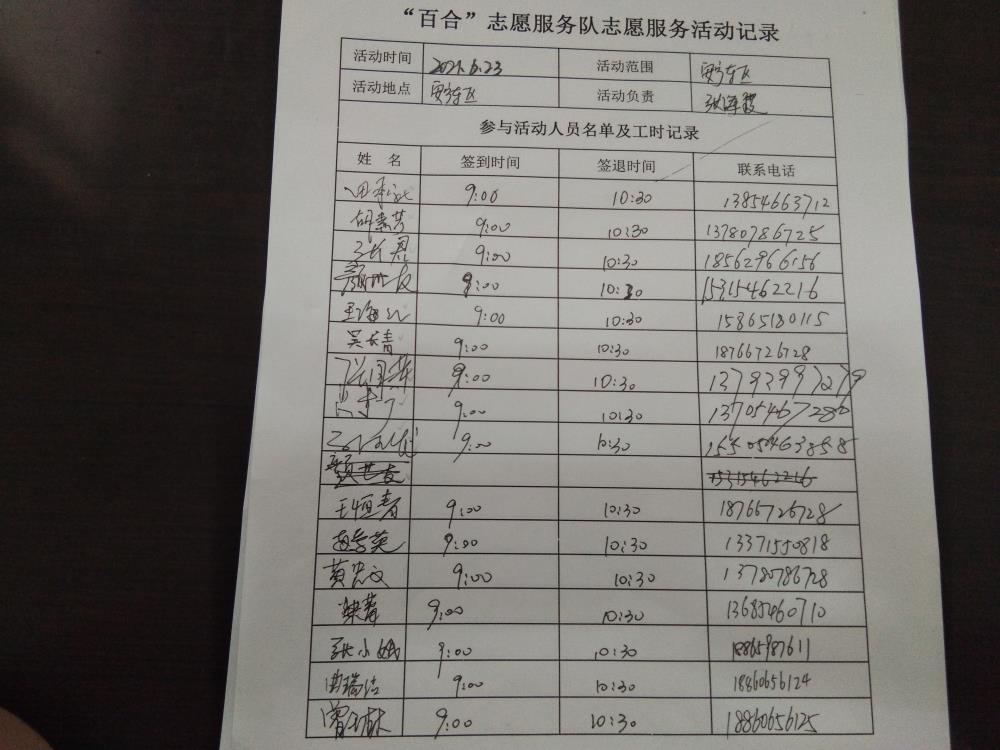 “百合”志愿服务队志愿服务活动记录
活动时间 2021.6.23 活动范围 东区
活动地点 东区 活动负责 张海霞
参与活动人员名单及工时记录
姓 名 签到时间 签退时间 联系电话
9:00 10:30 13854663712
胡素芳 9:00 10:30 13780786725
9:00 10:30 18562966156
9:00 10:30 15315462216
王海 9:00 10:30 15865180115
吴长青 9:00 10:30 18766726728
9:00 10:30 13793997279
9:00 10:30 13705467286
9:00 10:30 15505463858
15315462216
王恒春 9:00 10:30 18766726728
9:00 10:30 13371550818
黄忠文 9:00 10:30 13780786728
9:00 10:30 13685460710
张小娥 9:00 10:30 18865987611
曲瑞洁 9:00 10:30 18860656124
9:00 10:30 18860656125